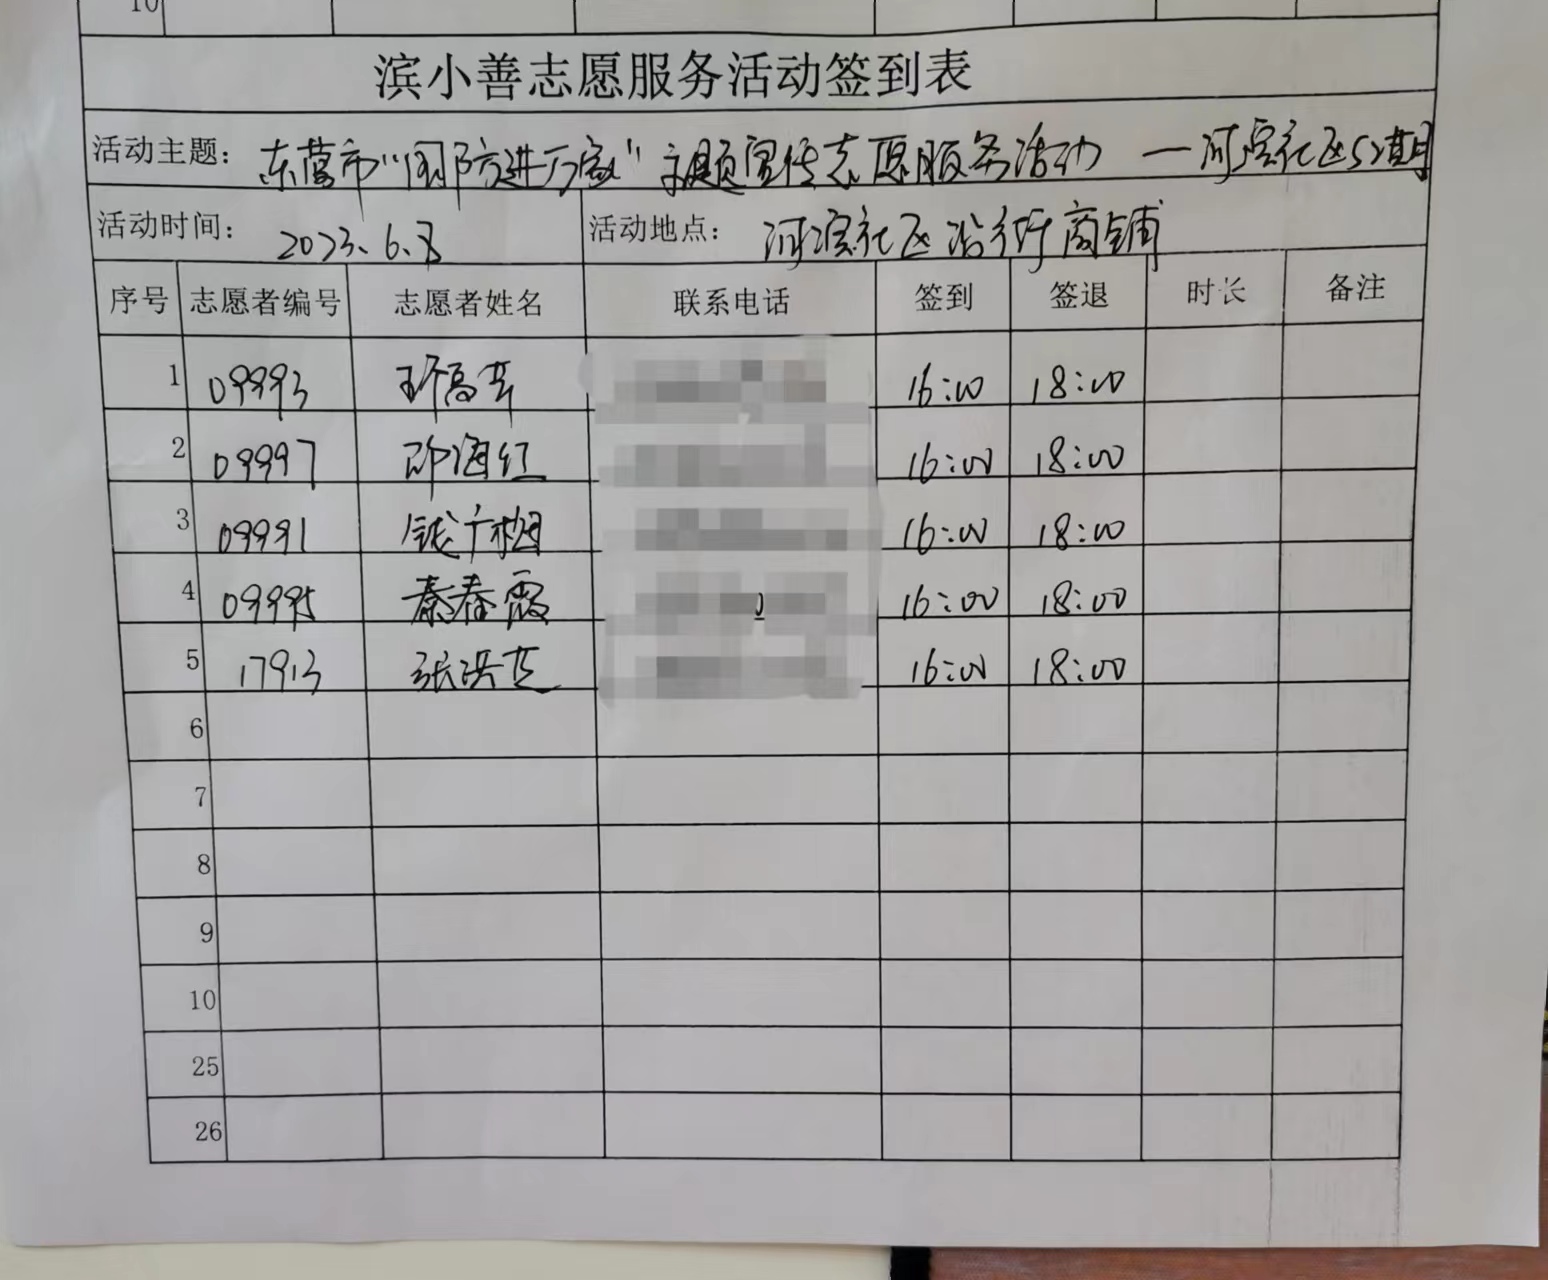 10
滨小善志愿服务活动签到表
活动主题： 东营市“国防进万家”主题宣传志愿服务活动 —河滨社区52期
活动时间： 2023.6.8 活动地点： 河滨社区沿街商铺
序号 志愿者编号 志愿者姓名 联系电话 签到 签退 时长 备注
1 09993 16:00 18:00
2 09997 邵海红 16:00 18:00
3 09991 16:00 18:00
4 09995 秦春霞 16:00 18:00
5 17913 张洪芝 16:00 18:00
6
7
8
9
10
25
26